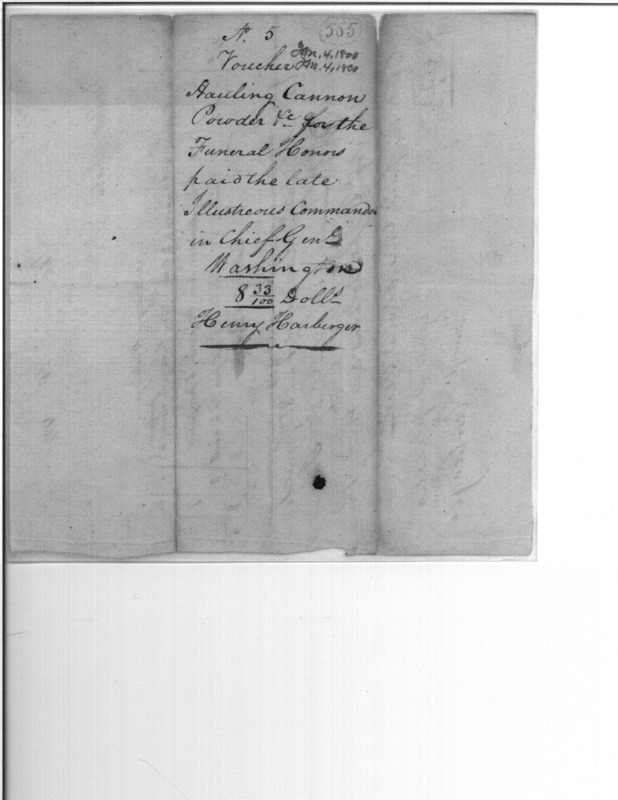 No. 5
555
Jan. 4, 1800
Voucher Jan. 4, 1800
Hauling Cannon
Powder &c for the
Funeral Honors
paid the late
Illustreous Commander
in Chief Genl
Washington
8 33/100 Dolls
Henry Harberger